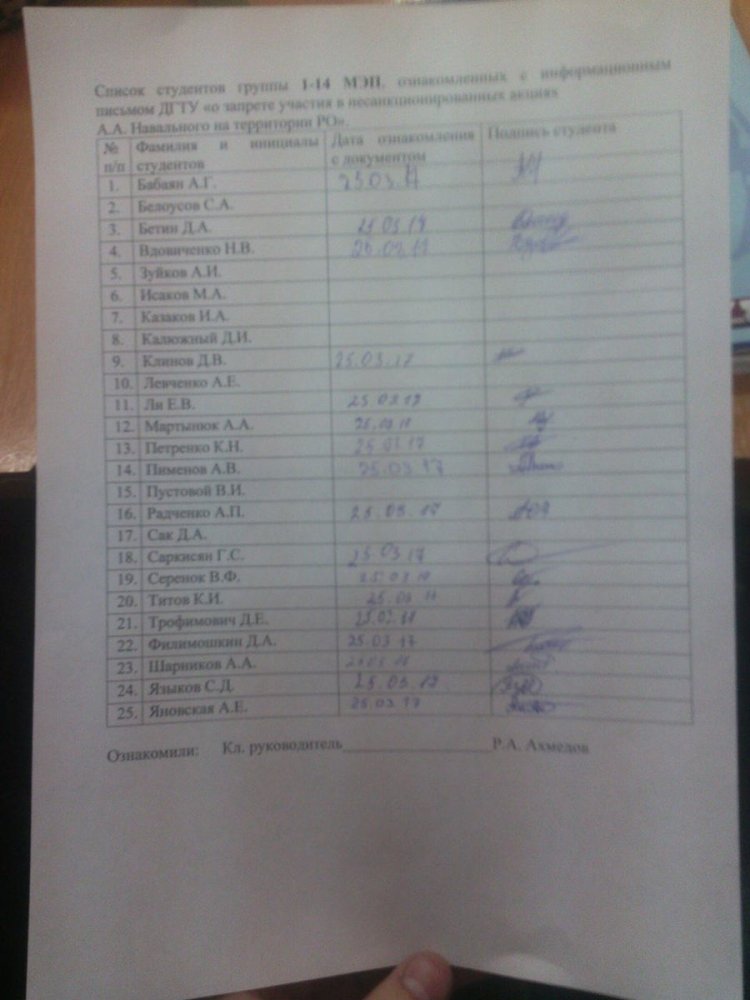 Список студентов группы 1-14 МЭП, ознакомленных с информационным
письмом ДГТУ «о запрете участия в несанкционированных акциях
А.А. Навального на территории РО».
№ Фамилия и инициалы Дата ознакомления Подпись студента
п/п студентов с документом
1. Бабаян А.Г.
2. Белоусов С.А.
3. Бетин Д.А.
4. Вдовиченко Н.В.
5. Зуйков А.И.
6. Исаков М.А.
7. Казаков И.А.
8. Калюжный Д.И.
9. Клинов Д.В. 25.03.17
10. Левченко А.Е.
11. Ли Е.В.
12. Мартынюк А.А.
13. Петренко К.Н.
14. Пименов А.В. 25.03.17
15. Пустовой В.И.
16. Радченко А.П. 25.03.17
17. Сак Д.А.
18. Саркисян Г.С. 25 03 17
19. Серенок В.Ф.
20. Титов К.И.
21. Трофимович Д.Е.
22. Филимошкин Д.А. 25.03 17
23. Шарников А.А.
24. Языков С.Д.
25. Яновская А.Е. 25.03.17
Ознакомили: Кл. руководитель Р.А. Ахмедов